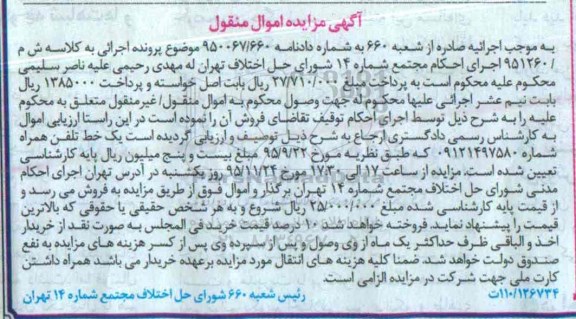 آگهی مزایده اموال منقول
به موجب اجرائیه صادره از شعبه ۶۶۰ به شماره دادنامه ۹۵۰۰۶۷/۶۶۰ موضوع پرونده اجرائی به کلاسه ش م
/۹۵۱۲۶۰ اجرای احکام مجتمع شماره ۱۴ شورای حل اختلاف تهران له مهدی رحیمی علیه ناصر سلیمی
محکوم علیه محکوم است به پرداخت مبلغ ۲۷/۷۱۰/۰۰۰ ریال بابت اصل خواسته و پرداخت ۱۳۸۵۰۰۰ ریال
بابت نیم عشر اجرائی علیها محکوم له جهت وصول محکوم به اموال منقول/غیرمنقول متعلق به محکوم
علیه را به شرح ذیل توسط اجرای احکام توقیف تقاضای فروش آن را نموده است در این راستا ارزیابی اموال
به کارشناس رسمی دادگستری ارجاع به شرح ذیل توصیف و ارزیابی گردیده است یک خط تلفن همراه
شماره ۰۹۱۲۱۴۹۷۵۸۰ که طبق نظریه مورخ ۹۵/۹/۲۲ مبلغ بیست و پنج میلیون ریال پایه کارشناسی
تعیین شده است. مزایده از ساعت ۱۷ الی ۱۷:۳۰ مورخ ۹۵/۱۱/۲۴ روز یکشنبه در آدرس تهران اجرای احکام
مدنی شورای حل اختلاف مجتمع شماره ۱۴ تهران برگذار و اموال فوق از طریق مزایده به فروش می رسد و
از قیمت پایه کارشناسی شده مبلغ ۲۵/۰۰۰/۰۰۰ ریال شروع و به هر شخص حقیقی یا حقوقی که بالاترین
قیمت را پیشنهاد نماید. فروخته خواهد شد ۱۰ درصد قیمت خرید فی المجلس به صورت نقد از خریدار
اخذ و الباقی ظرف حداکثر یک ماه از وی وصول و پس از سپرده وی پس از کسر هزینه های مزایده به نفع
صندوق دولت خواهد شد. ضمنا کلیه هزینه های انتقال مورد مزایده برعهده خریدار می باشد همراه داشتن
کارت ملی جهت شرکت در مزایده الزامی است.
۱۱۰/۱۲۶۷۳۴ت رئیس شعبه ۶۶۰ شورای حل اختلاف مجتمع شماره ۱۴ تهران